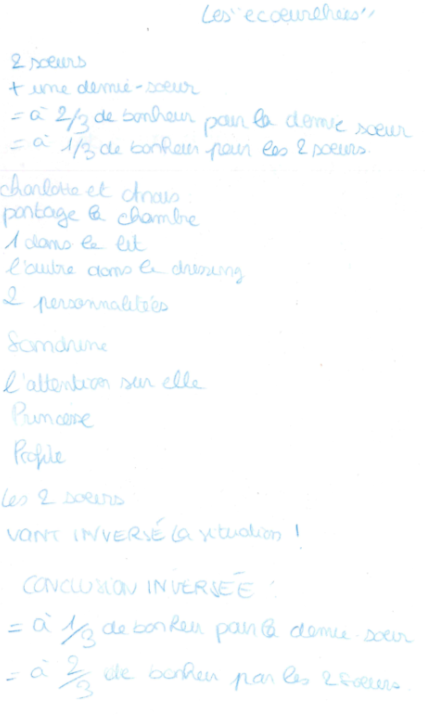 Les "ecoeurchées"
2 sœurs
+ une demie-sœur
= à 2/3 de bonheur pour la demie sœur
= à 1/3 de bonheur pour les 2 sœurs.
charlotte et Anais
partage la chambre
1 dans le lit
l'autre dans le dressing
2 personnalitées
Sandrine
l'attention sur elle
Princesse
Profite
Les 2 sœurs
VONT INVERSÉ la situation !
CONCLUSION INVERSÉE :
= à 1/3 de bonheur pour la demie-sœur
= à 2/3 de bonheur par les 2 sœurs.